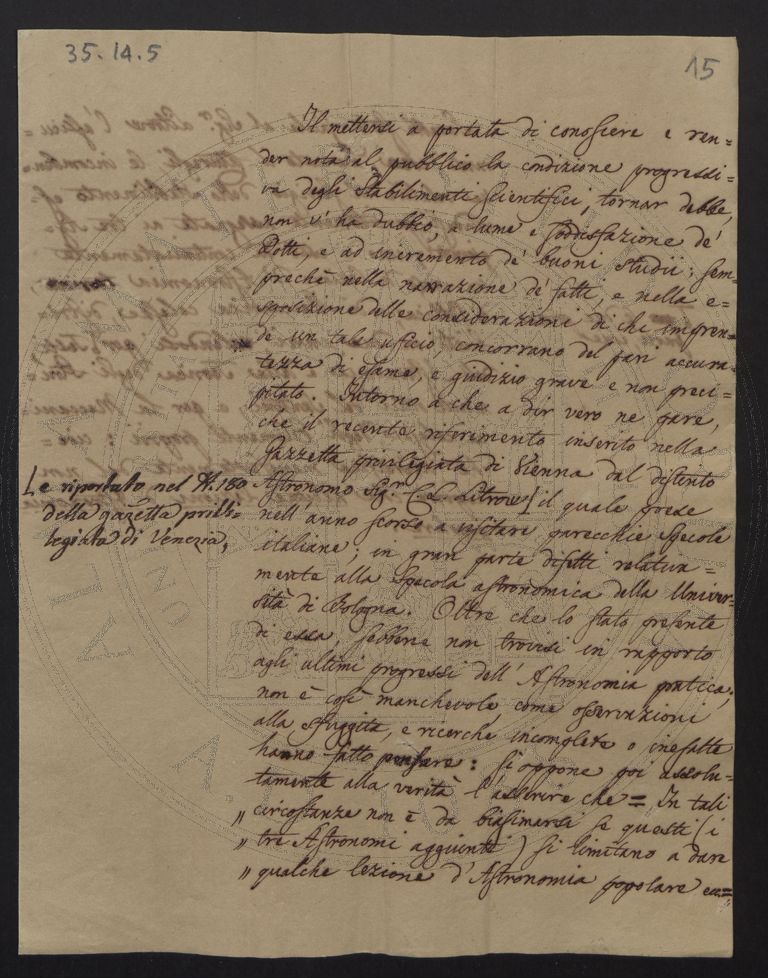 35.14.5
15
Il mettersi a portata di conoscere e ren=
der nota al pubblico la condizione progressi=
va degli Stabilimenti Scientifici, tornar debbe,
non v'ha dubbio, a lume e soddisfazione de'
Dotti, e ad incremento de' buoni studii: sem=
prechè nella narrazione de' fatti, e nella e=
sposizione delle considerazioni di che impren=
de un tale uficio, concorrano del pari accura=
tezza di esame, e giudizio grave e non preci=
pitato. Intorno a che a dir vero ne pare,
che il recente riferimento inserito nella
Gazzetta privilegiata di Vienna dal distinto
Astronomo Sig.r C. L. Litrow [il quale prese
nell'anno scorso a visitare parecchie Specole
italiane; in gran parte difetti relativa=
mente alla Specola astronomica della Univer=
sità di Bologna. Oltre che lo stato presente
di essa, sebbene non trovisi in rapporto
agli ultimi progressi dell'Astronomia pratica,
non è così manchevole come osservazioni
alla sfuggita, e ricerche incomplete o inesatte
hanno fatto pensare: si oppone poi assolu=
tamente alla verità l'asserire che = In tali
" circostanze non è da biasimarsi se questi (i
" tre Astronomi aggiunti) si limitano a dare
" qualche lezione d'Astronomia popolare ecc=
Le riportato nel N. 180
della gazzetta privi=
legiata di Venezia,